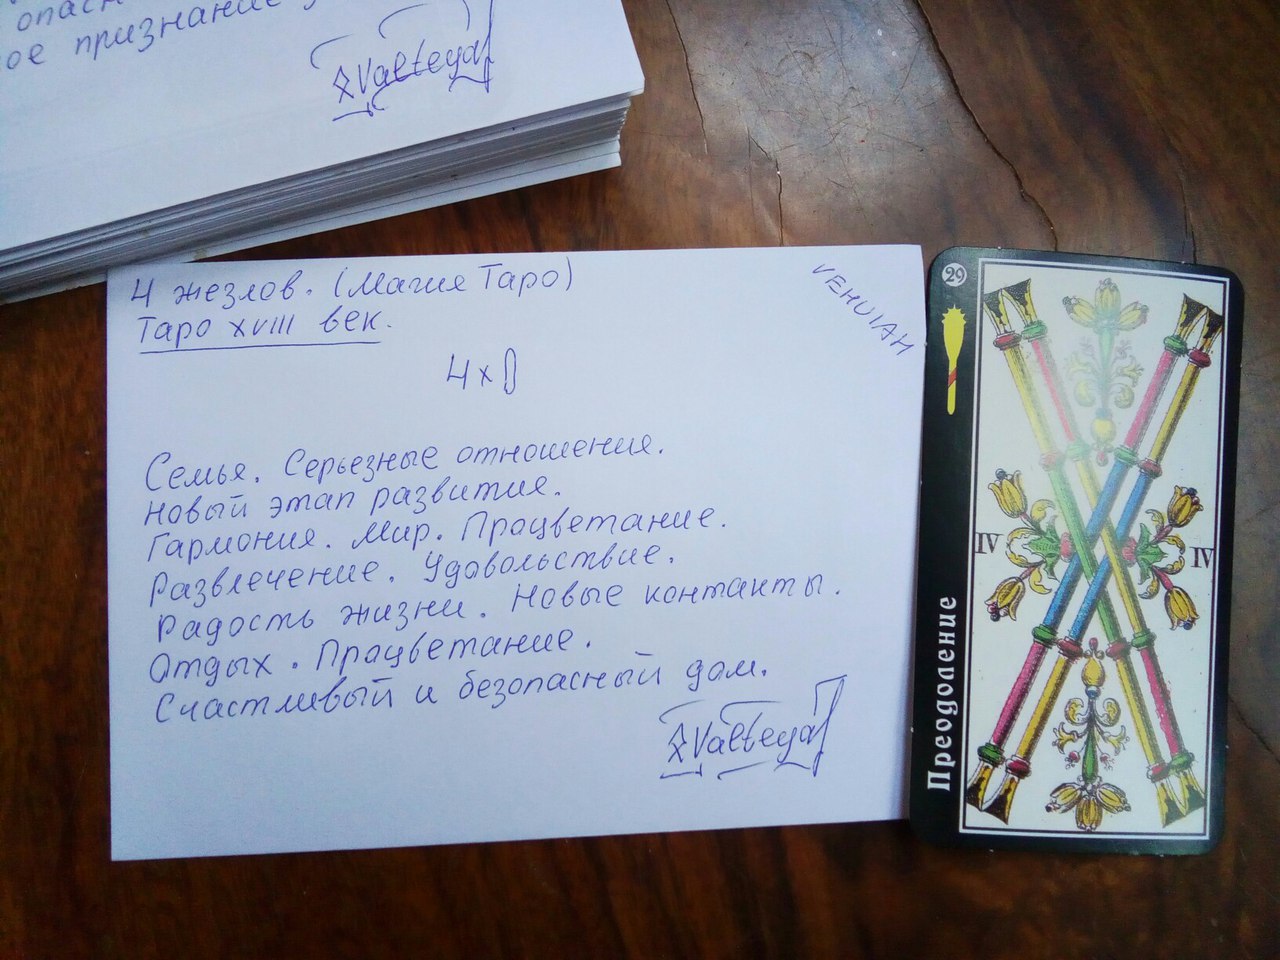 опасн
ое признание
Valteya
4 жезлов. (Магия Таро)
Таро XVIII век.
VEHUIAH
4 x
Семья. Серьезные отношения.
Новый этап развития.
Гармония. Мир. Процветание.
Развлечение. Удовольствие.
Радость жизни. Новые контакты.
Отдых. Працветание.
Счастливый и безопасный дом.
Valteya
29
IV
IV
Преодоление